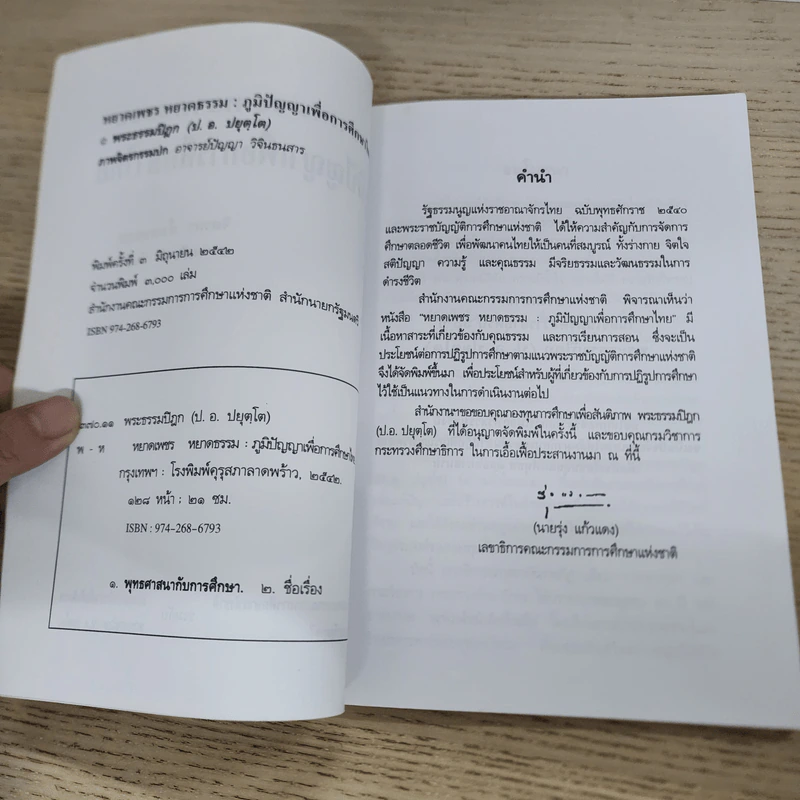 หยาดเพชร หยาดธรรม : ภูมิปัญญาเพื่อการศึกษา
๏ พระธรรมปิฎก (ป. อ. ปยุตฺโต)
ภาพจิตรกรรมปก อาจารย์ปัญญา วิจินธนสาร
พิมพ์ครั้งที่ ๓ มิถุนายน ๒๕๔๒
จำนวนพิมพ์ ๓,๐๐๐ เล่ม
สำนักงานคณะกรรมการการศึกษาแห่งชาติ สำนักนายกรัฐมนตรี
ISBN 974-268-6793
๓๗๐.๑๑ พระธรรมปิฎก (ป. อ. ปยุตฺโต)
พ - ห หยาดเพชร หยาดธรรม : ภูมิปัญญาเพื่อการศึกษา
กรุงเทพฯ : โรงพิมพ์คุรุสภาลาดพร้าว, ๒๕๔๒.
๑๒๘ หน้า : ๒๑ ซม.
ISBN : 974-268-6793
๑. พุทธศาสนากับการศึกษา. ๒. ชื่อเรื่อง
คำนำ
รัฐธรรมนูญแห่งราชอาณาจักรไทย ฉบับพุทธศักราช ๒๕๔๐
และพระราชบัญญัติการศึกษาแห่งชาติ ได้ให้ความสำคัญกับการจัดการ
ศึกษาตลอดชีวิต เพื่อพัฒนาคนไทยให้เป็นคนที่สมบูรณ์ ทั้งร่างกาย จิตใจ
สติปัญญา ความรู้ และคุณธรรม มีจริยธรรมและวัฒนธรรมในการ
ดำรงชีวิต
สำนักงานคณะกรรมการการศึกษาแห่งชาติ พิจารณาเห็นว่า
หนังสือ "หยาดเพชร หยาดธรรม : ภูมิปัญญาเพื่อการศึกษาไทย" มี
เนื้อหาสาระที่เกี่ยวข้องกับคุณธรรม และการเรียนการสอน ซึ่งจะเป็น
ประโยชน์ต่อการปฏิรูปการศึกษาตามแนวพระราชบัญญัติการศึกษาแห่งชาติ
จึงได้จัดพิมพ์ขึ้นมา เพื่อประโยชน์สำหรับผู้ที่เกี่ยวข้องกับการปฏิรูปการศึกษา
ไว้ใช้เป็นแนวทางในการดำเนินงานต่อไป
สำนักงานฯขอขอบคุณกองทุนการศึกษาเพื่อสันติภาพ พระธรรมปิฎก
(ป.อ. ปยุตฺโต) ที่ได้อนุญาตจัดพิมพ์ในครั้งนี้ และขอบคุณกรมวิชาการ
กระทรวงศึกษาธิการ ในการเอื้อเฟื้อประสานงานมา ณ ที่นี้
(นายรุ่ง แก้วแดง)
เลขาธิการคณะกรรมการการศึกษาแห่งชาติ